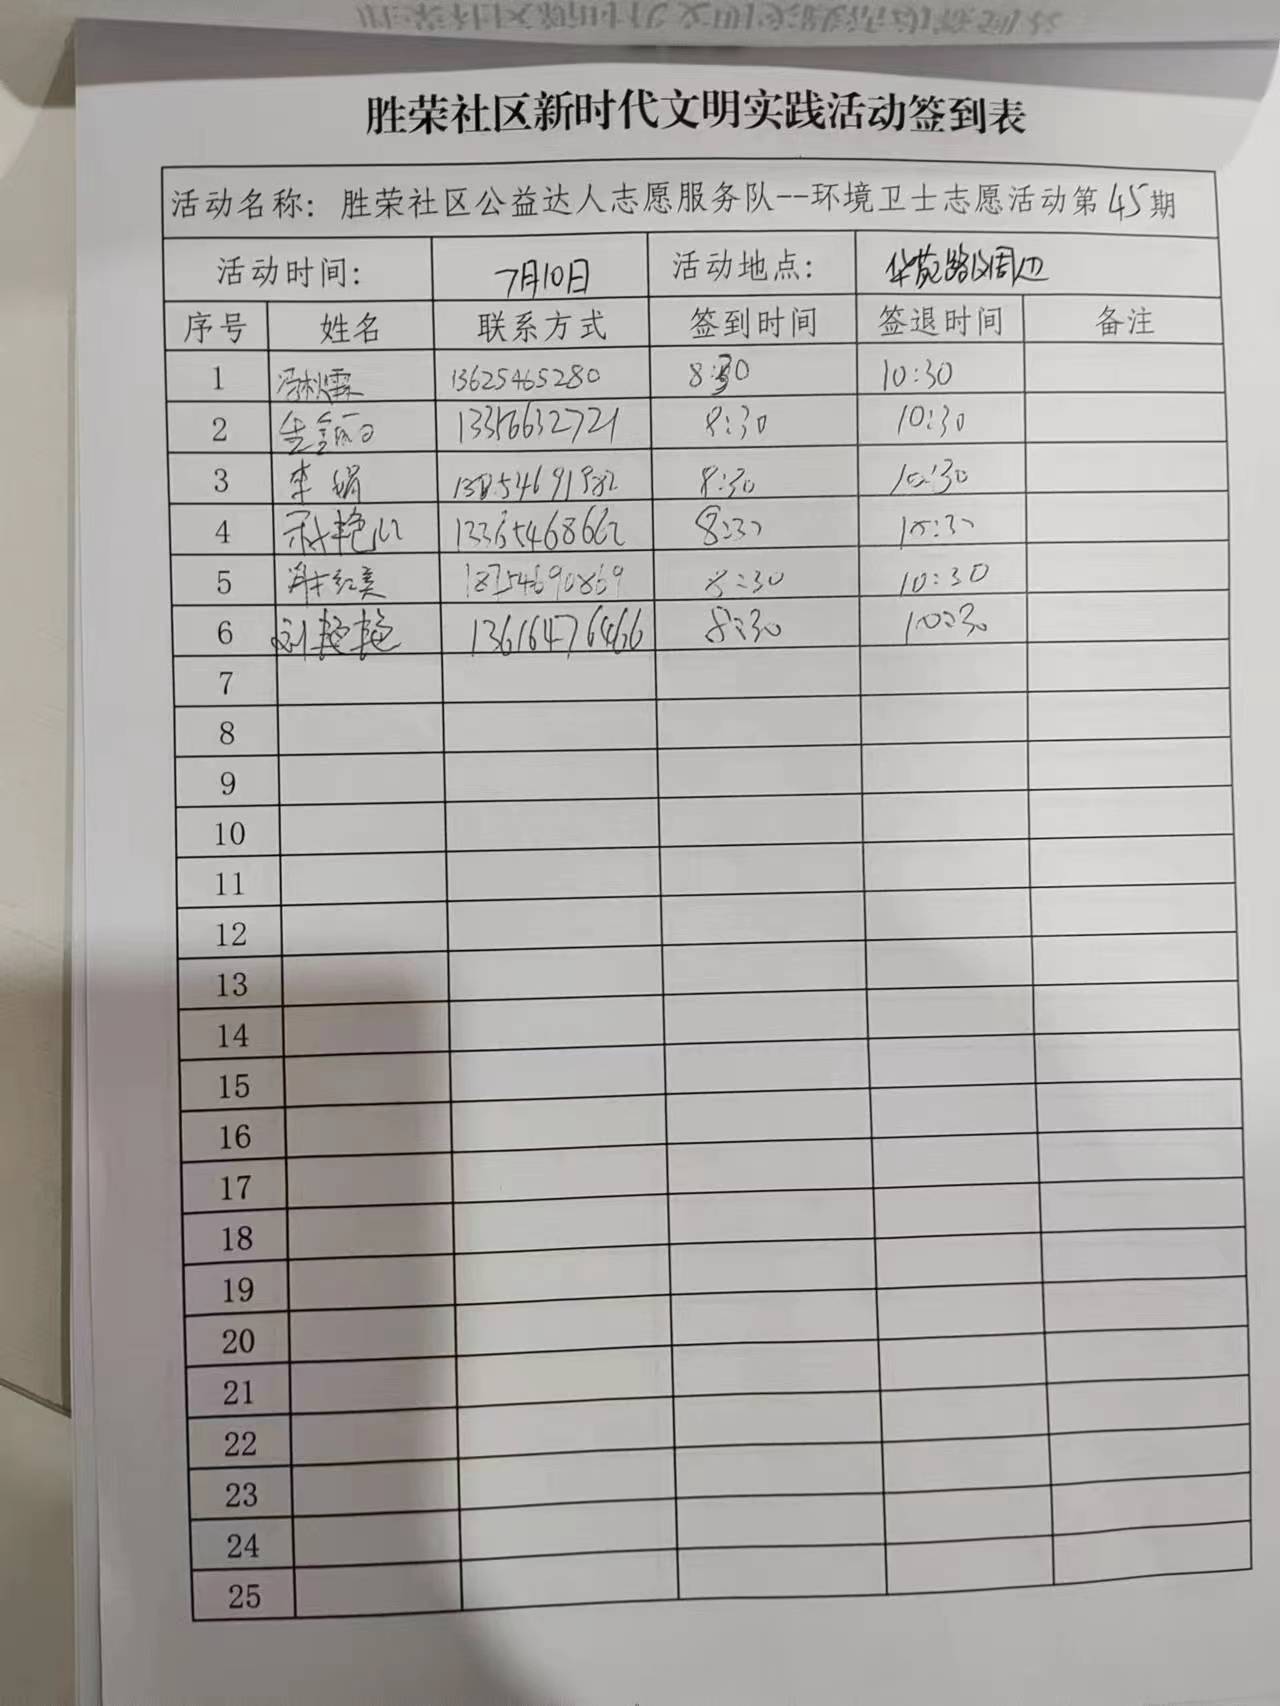 胜荣社区新时代文明实践活动签到表
活动名称：胜荣社区公益达人志愿服务队--环境卫士志愿活动第45期
活动时间： 7月10日 活动地点： 华苑路及周边
序号 姓名 联系方式 签到时间 签退时间 备注
1 冯秋霖 13625465280 8:30 10:30
2 8:30 10:30
3 李娟 8:30 10:30
4 13365468662 8:30 10:30
5 红美 18754690869 8:30 10:30
6 刘艳艳 13616476466 8:30 10:30
7
8
9
10
11
12
13
14
15
16
17
18
19
20
21
22
23
24
25